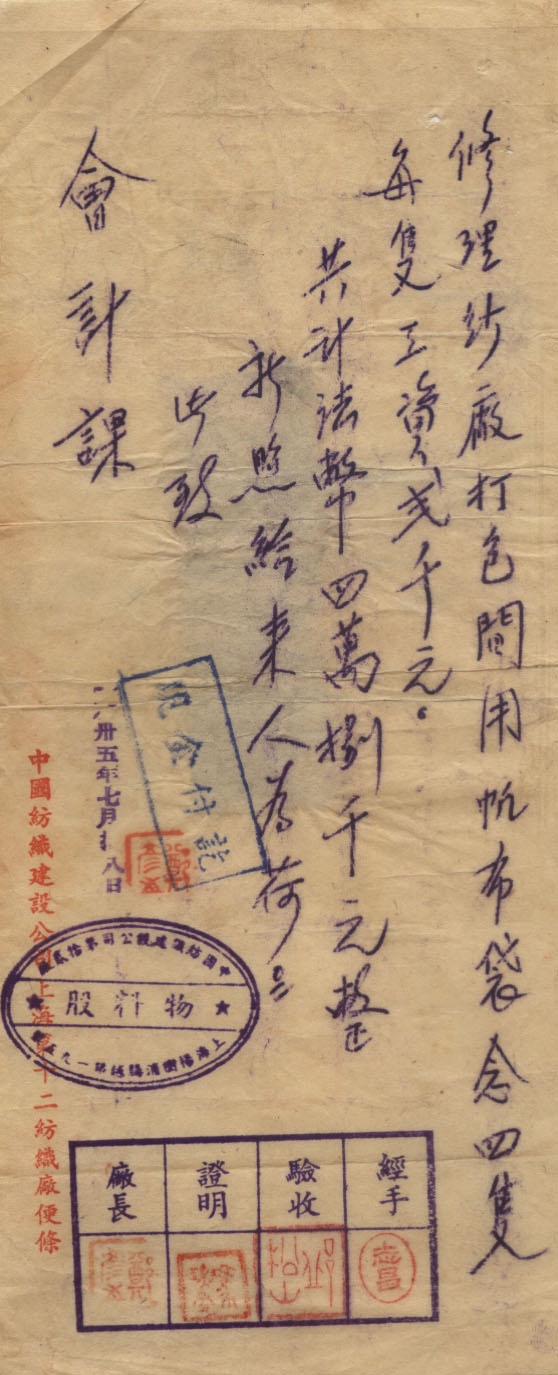 修理紗廠打包間用帆布袋念四隻
每隻工資弍千元。
共計法幣四萬捌千元整
祈照給来人為荷
此致
會計課
現金付訖
卅五年七月 八日
中國紡織建設公司上海第十二紡織廠便條
中國紡織建設公司第拾貳
物料股
經手
驗收
證明
廠長
志昌